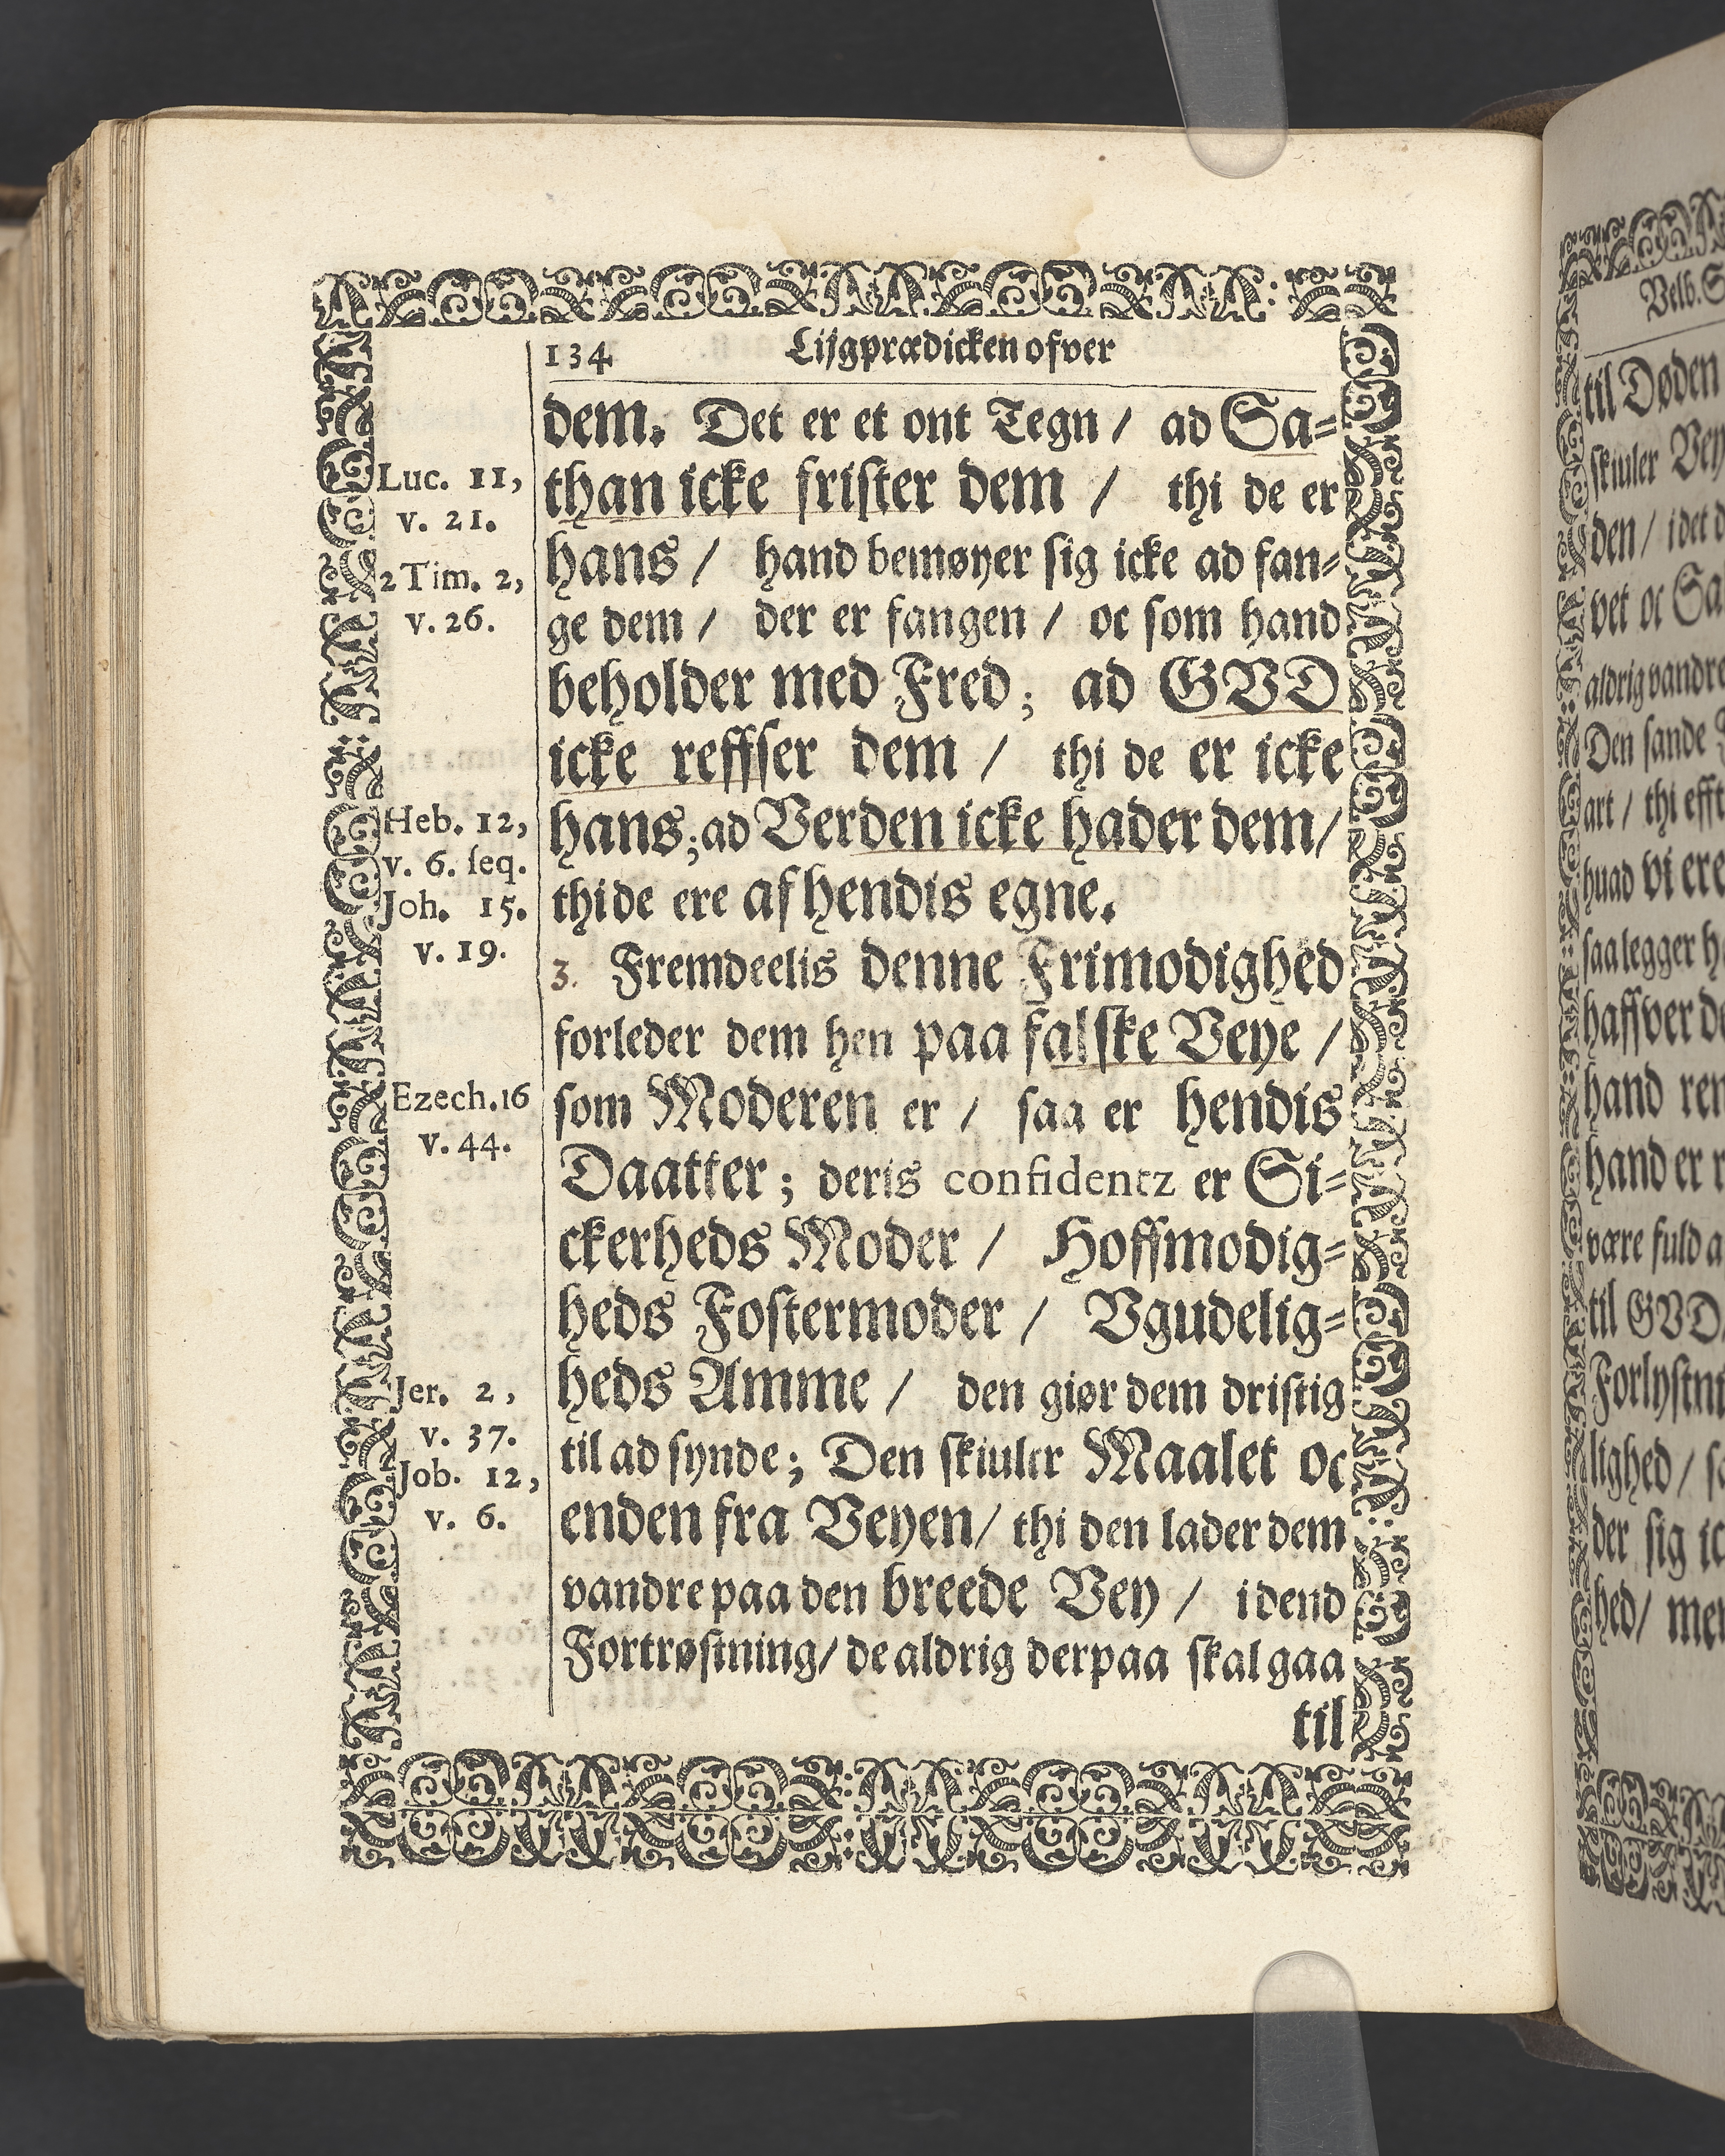 134 Lijgprædicken ofver
dem. Det er et ont Tegn / ad Sa=
than icke frister dem / thi de er
hans / hand bemøyer sig icke ad fan=
ge dem / der er fangen / oc som hand
beholder med Fred; ad GVD
icke reffser dem / thi de er icke
hans; ad Verden icke hader dem /
thi de ere af hendis egne.
3. Fremdeelis denne Frimodighed
forleder dem hen paa falske Veye /
som Moderen er / saa er hendis
Daatter; deris confidentz er Si=
ckerheds Moder / Hoffmodig=
heds Fostermoder / Vgudelig=
heds Amme / den giør dem dristig
til ad synde; Den skiuler Maalet oc
enden fra Veyen / thi den lader dem
vandre paa den breede Vey / i dend
Fortrøstning / de aldrig derpaa skal gaa
til
Luc. 11,
v. 21.
2 Tim. 2,
v. 26.
Heb. 12,
v. 6. seq.
Joh. 15.
v. 19.
Ezech. 16
v. 44.
Jer. 2,
v. 37.
Job. 12,
v. 6.
Velb.
til Døden
skiuler Vey
den / idet
vet oc Sa
aldrig vandre
Den sande
art / thi efft
huad vi ere
saa legger
haffver de
hand ren
hand er
være fuld a
til GVD
Forlystni
lighed /
der sig ic
hed / men